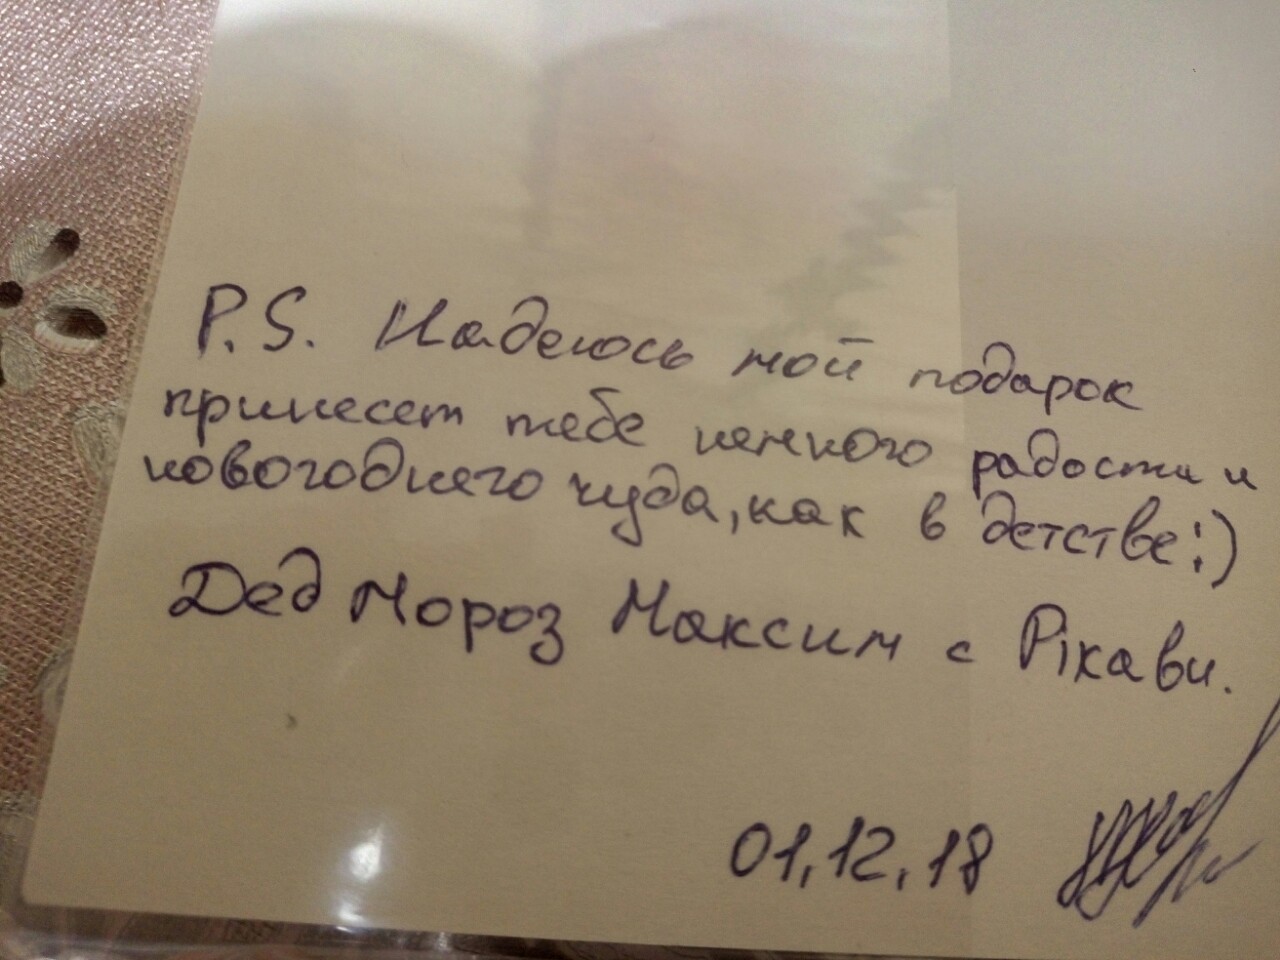 P.S. Надеюсь мой подарок
принесет тебе немного радости и
новогоднего чуда, как в детстве!:)
Дед Мороз Максим с Рікави.
01.12.18